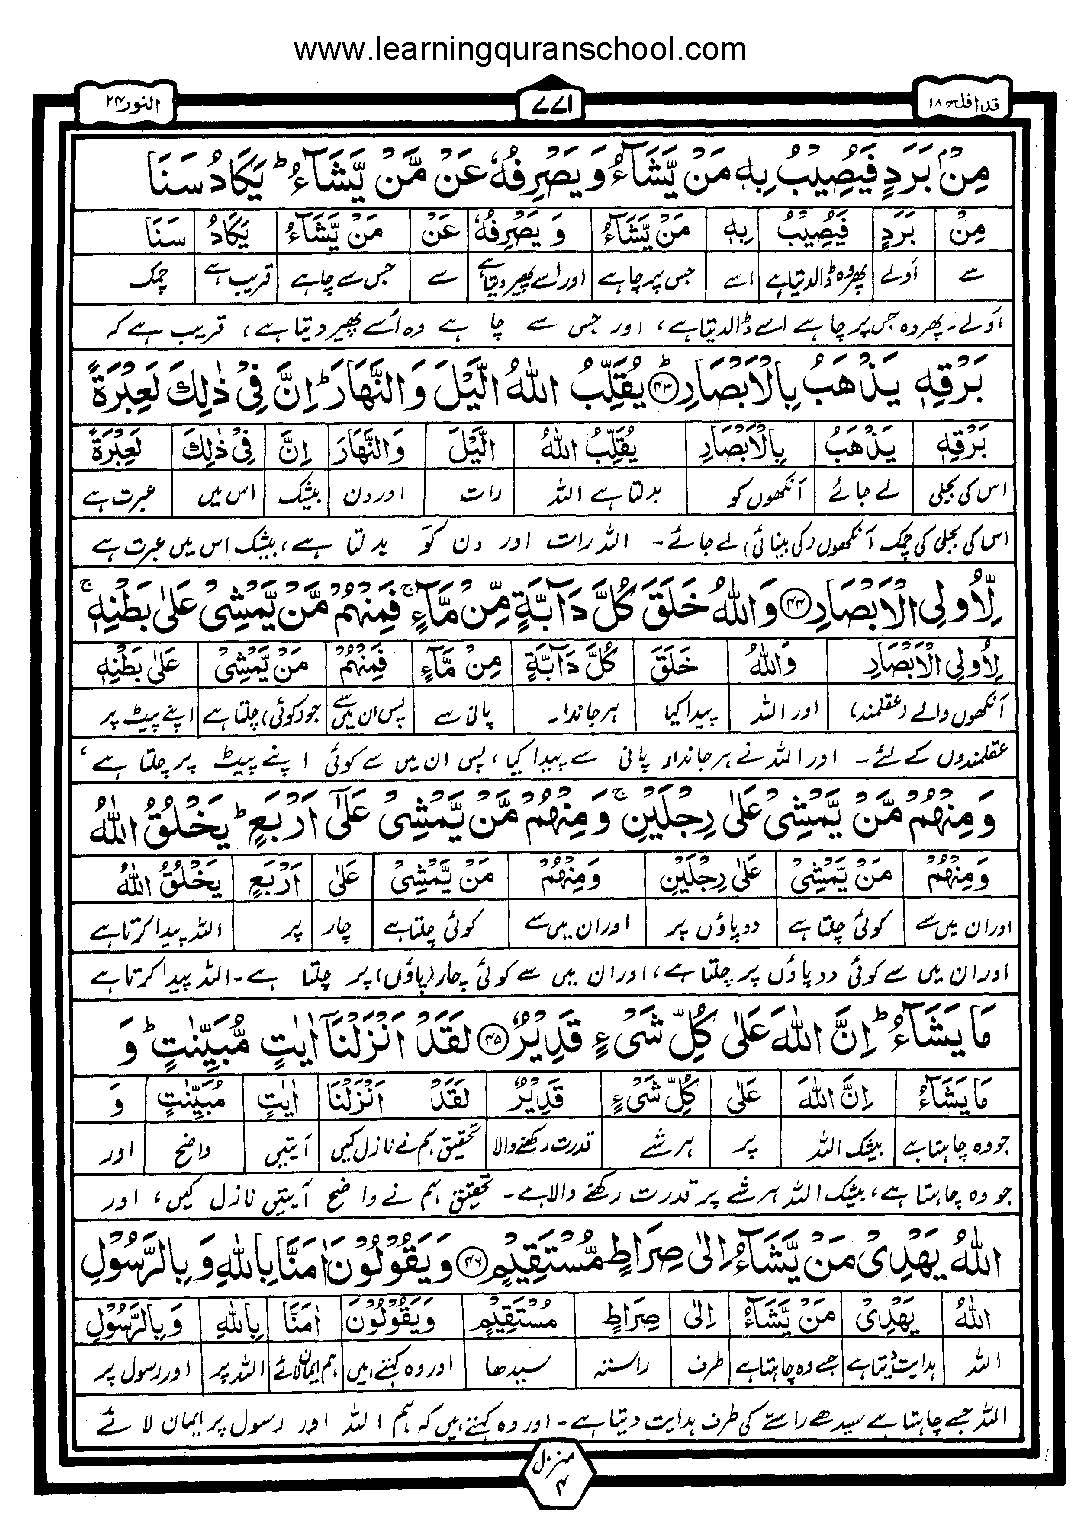 www.learningquranschool.com
قد افلح ۱۸
۷۷۱
النور ۲۴
مِنْۢ بَرَدٍ فَيُصِيْبُ بِهٖ مَنْ يَّشَآءُ وَيَصْرِفُهٗ عَنْ مَّنْ يَّشَآءُ ؕ يَكَادُ سَنَا
مِنْ بَرَدٍ فَيُصِيْبُ بِهٖ مَنْ يَّشَآءُ وَ يَصْرِفُهٗ عَنْ مَنْ يَّشَآءُ يَكَادُ سَنَا
سے اَولے پھر وہ ڈالدیتا ہے اسے جس پر چاہے اور اُسے پھیر دیتا ہے سے جس سے چاہے قریب ہے چمک
اَولے۔ پھر وہ جس پر چاہے اسے ڈالدیتا ہے، اور جس سے چاہے وہ اُسے پھیر دیتا ہے، قریب ہے کہ
بَرْقِهٖ يَذْهَبُ بِالْاَبْصَارِ ؕ ۴۳ يُقَلِّبُ اللّٰهُ الَّيْلَ وَالنَّهَارَ ؕ اِنَّ فِيْ ذٰلِكَ لَعِبْرَةً
بَرْقِهٖ يَذْهَبُ بِالْاَبْصَارِ يُقَلِّبُ اللّٰهُ الَّيْلَ وَالنَّهَارَ اِنَّ فِيْ ذٰلِكَ لَعِبْرَةً
اس کی بجلی لے جائے آنکھوں کو بدلتا ہے اللہ رات اور دن بیشک اس میں عبرت ہے
اس کی بجلی کی چمک آنکھوں (کی بینائی) لے جائے۔ اللہ رات اور دن کو بدلتا ہے، بیشک اس میں عبرت ہے
لِّاُولِي الْاَبْصَارِ ۴۴ وَاللّٰهُ خَلَقَ كُلَّ دَآبَّةٍ مِّنْ مَّآءٍ ۚ فَمِنْهُمْ مَّنْ يَّمْشِيْ عَلٰى بَطْنِهٖ ۚ
لِاُولِي الْاَبْصَارِ وَاللّٰهُ خَلَقَ كُلَّ دَآبَّةٍ مِنْ مَّآءٍ فَمِنْهُمْ مَنْ يَّمْشِيْ عَلٰى بَطْنِهٖ
آنکھوں والے (عقلمند) اور اللہ پیدا کیا ہر جاندار۔ پانی سے پس ان میں سے جو (کوئی) چلتا ہے اپنے پیٹ پر
عقلمندوں کے لئے۔ اور اللہ نے ہر جاندار پانی سے پیدا کیا، پس ان میں سے کوئی اپنے پیٹ پر چلتا ہے،
وَمِنْهُمْ مَّنْ يَّمْشِيْ عَلٰى رِجْلَيْنِ ۚ وَمِنْهُمْ مَّنْ يَّمْشِيْ عَلٰٓى اَرْبَعٍ ؕ يَخْلُقُ اللّٰهُ
وَمِنْهُمْ مَنْ يَّمْشِيْ عَلٰى رِجْلَيْنِ وَمِنْهُمْ مَنْ يَّمْشِيْ عَلٰى اَرْبَعٍ يَخْلُقُ اللّٰهُ
اور ان میں سے کوئی چلتا ہے دو پاؤں پر اور ان میں سے کوئی چلتا ہے چار پر اللہ پیدا کرتا ہے
اور ان میں سے کوئی دو پاؤں پر چلتا ہے، اور ان میں سے کوئی چار (پاؤں) پر چلتا ہے۔ اللہ پیدا کرتا ہے
مَا يَشَآءُ ؕ اِنَّ اللّٰهَ عَلٰى كُلِّ شَيْءٍ قَدِيْرٌ ۴۵ لَقَدْ اَنْزَلْنَآ اٰيٰتٍ مُّبَيِّنٰتٍ ؕ وَ
مَا يَشَآءُ اِنَّ اللّٰهَ عَلٰى كُلِّ شَيْءٍ قَدِيْرٌ لَقَدْ اَنْزَلْنَا اٰيٰتٍ مُبَيِّنٰتٍ وَ
جو وہ چاہتا ہے بیشک اللہ پر ہر شے قدرت رکھنے والا تحقیق ہم نے نازل کیں آیتیں واضح اور
جو وہ چاہتا ہے، بیشک اللہ ہر شے پر قدرت رکھنے والا ہے۔ تحقیق ہم نے واضح آیتیں نازل کیں، اور
اللّٰهُ يَهْدِيْ مَنْ يَّشَآءُ اِلٰى صِرَاطٍ مُّسْتَقِيْمٍ ۴۶ وَيَقُوْلُوْنَ اٰمَنَّا بِاللّٰهِ وَبِالرَّسُوْلِ
اللّٰهُ يَهْدِيْ مَنْ يَّشَآءُ اِلٰى صِرَاطٍ مُسْتَقِيْمٍ وَيَقُوْلُوْنَ اٰمَنَّا بِاللّٰهِ وَبِالرَّسُوْلِ
اللہ ہدایت دیتا ہے جسے وہ چاہتا ہے طرف راستہ سیدھا اور وہ کہتے ہیں ہم ایمان لائے اللہ پر اور رسول پر
اللہ جسے چاہتا ہے سیدھے راستے کی طرف ہدایت دیتا ہے۔ اور وہ کہتے ہیں کہ ہم اللہ اور رسول پر ایمان لائے
منزل ۴